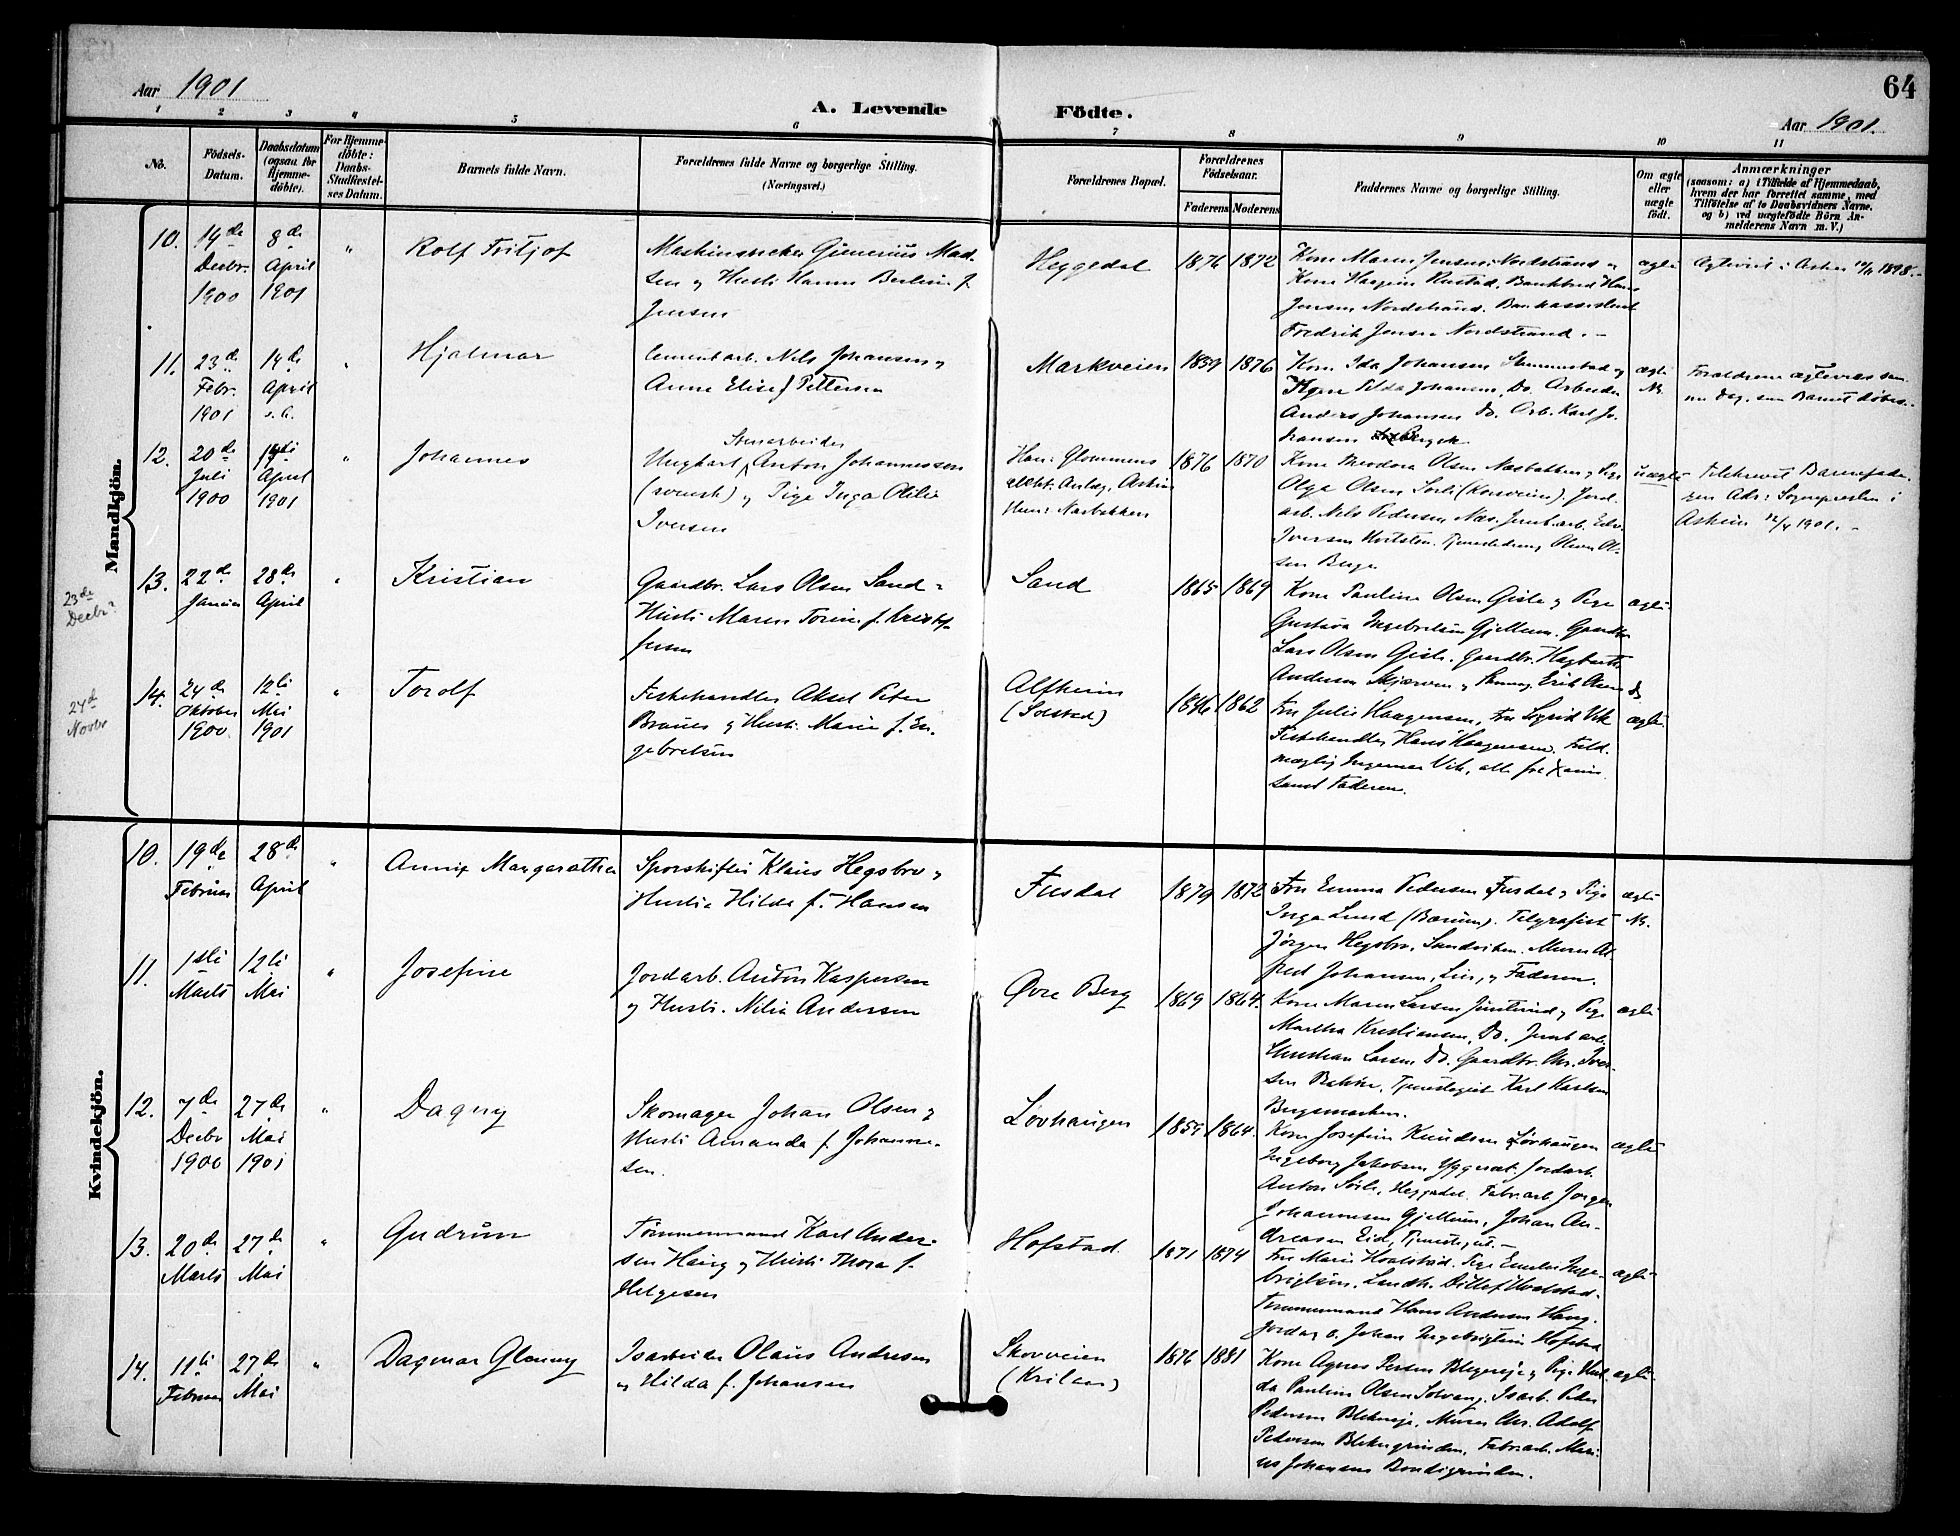 64
Aar 1901
A. Levende Födte.
Aar 1901.
1 2 3 4 5 6 7 8 9 10 11
No.
Födsels-
Datum.
Daabsdatum
(ogsaa for
Hjemme-
döbte).
For Hjemme-
döbte:
Daabs-
Stadfæstel-
ses Datum.
Barnets fulde Navn.
Forældrenes fulde Navne og borgerlige Stilling.
(Næringsvei.)
Forældrenes Bopæl.
Forældrenes
Födselsaar.
Faderens Moderens
Faddernes Navne og borgerlige Stilling.
Om ægte
eller
uægte
födt.
Anmærkninger
(saasom: a) i Tilfælde af Hjemmedaab,
hvem der har forrettet samme, med
Tilföielse af to Daabsvidners Navne,
og b) ved uægtefödte Börn An-
melderens Navn m. V.)
Mandkjön.
10.
14de
Decbr.
1900
8de
April
1901
"
Rolf Fritjof
Gunerius Mad-
sen og Hustr. Hanna f.
Jensen
Heggedal
1876 1872
Kone Maren Jensen, Nordstrand og
Kone Rustad, Hans
Jensen Nordstrand.
Fredrik Jensen Nordstrand. -
ægte
i Asker 1898. -
11.
23de
Febr.
1901
14de
April
s.a.
"
Hjalmar
Cementarb. Nels Johansen og
Anne Elise f. Pettersen
Markveien
1859 1876
Kone Ida Johansen og
Hilda Johansen, Do. Arbeider
Anders Johansen Do. Arb. Karl Jo-
hansen
ægte
Forældrene ægteviet sam-
me Dag, som Barnet døbes. -
12.
20de
Juli
1900
14de
April
1901
"
Johannes
Stenarbeider
Ungkarl Anton Johannessen
(svensk) og Pige Inga Otilie
Iversen
Han: Glommens
elekt. Anlæg, Askim
Hun: Næsbakken
1876 1870
Kone Theodora Olsen Næsbakken og Pige
Olga Olsen Jord-
arb. Nels Pedersen Næs. Jernb.arb. Edv.
Iversen Tjenestedreng Olaves Ol-
sen Berge
uægte
Tilskrevet Barnefade-
ren Adr: Sognepresten i
Askim 12/4 1901. -
23de
Decbr?
13.
22de
Januar
28de
April
"
Kristian
Gaardbr. Lars Olsen Sand og
Hustr. Maren Torine f. Kristof-
fersen
Sand
1865 1869
Kone Pauline Olsen Gisle og Pige
Gustava Ingebretsen Gjellum. Gaardbr.
Lars Olsen Gisle. Gaardbr. Hagbart
Andersen og Erik Olsen Do
ægte.
24de
Novbr
14.
24de
Oktober
1900
12te
Mai
1901
"
Torolf
Fiskehandler Aksel Peter
og Hustr. Marie f. En-
gebretsen
Alfheim
(Solstad)
1866 1862
Fru Julie Haagensen, Fru Sigrid Vik
Fiskehandler Hans Haagensen,
Ingemar Vik, alle fra Xania
samt Faderen.
ægte.
Kvindekjön.
10.
19de
Februar
28de
April
"
Annie Margarethea
Sporskifter Klaus Hegsbro og
Hustru Hilda f. Hansen
Fusdal
1879 1872
Fru Emma Pedersen Fusdal og Pige
Inga Lund (Bærum). Telegrafist
Jörgen Hegsbro, Sandviken. Murer Al-
fred Johansen, Lier, og Faderen.
ægte
11.
1ste
Marts
12te
Mai
"
Josefine
Jordarb. Anton Kaspersen
og Hustr. Nilia Andersen
Øvre Berg
1869 1864.
Kone Maren Larsen og Pige
Martha Kristiansen, Do. Jernb.arb.
Christian Larsen Do. Gaardbr. Chr. Iver-
sen Tjenestegut Karl Karlsen
Bergsmarken.
ægte
12.
7de
Decbr
1900
27de
Mai
1901
"
Dagny
Skomager Johan Olsen og
Hustr. Amanda f. Johanne-
sen.
Løvhaugen
1859 1864.
Kone Josefine Knudsen Løvhaugen
Ingeborg Jakobsen Yggeset. Jordarb.
Anton Heggedal. Fabr.arb. Jørgen
Johannesen Gjellum, Johan An-
dreasen Eid, Tjenestegut. -
ægte
13.
20de
Marts
27de
Mai
"
Gudrun
Tømmermand Karl Ander-
sen Haug og Hustr. Thora f.
Helgesen
Hofstad.
1871 1874
Fru Marie Hvalstad. Pige Emilie Inge-
brigtsen, Landh. Ditlef Hvalstad.
Tømmermand Hans Andersen Haug.
Johan Ingebrigtsen Hofstad
ægte
14.
11te
Februar
27de
Mai
"
Dagmar Glenny
Isarbeider Olaus Andersen
og Hilda f. Johansen
Skovveien
1876 1881
Kone Agnes og Pige
Pauline Olsen Solvang. Isarb. Peter
Pedersen Murer Chr. Adolf
Pedersen Fabr.arb. Mari-
us Johansen Bondigrinden.
ægte.